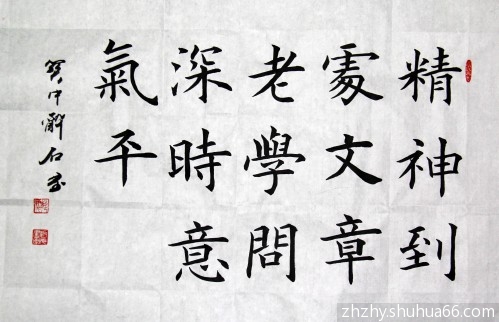 精神到
處文章
老學問
深時意
氣平
zhzhy.shuhua66.com